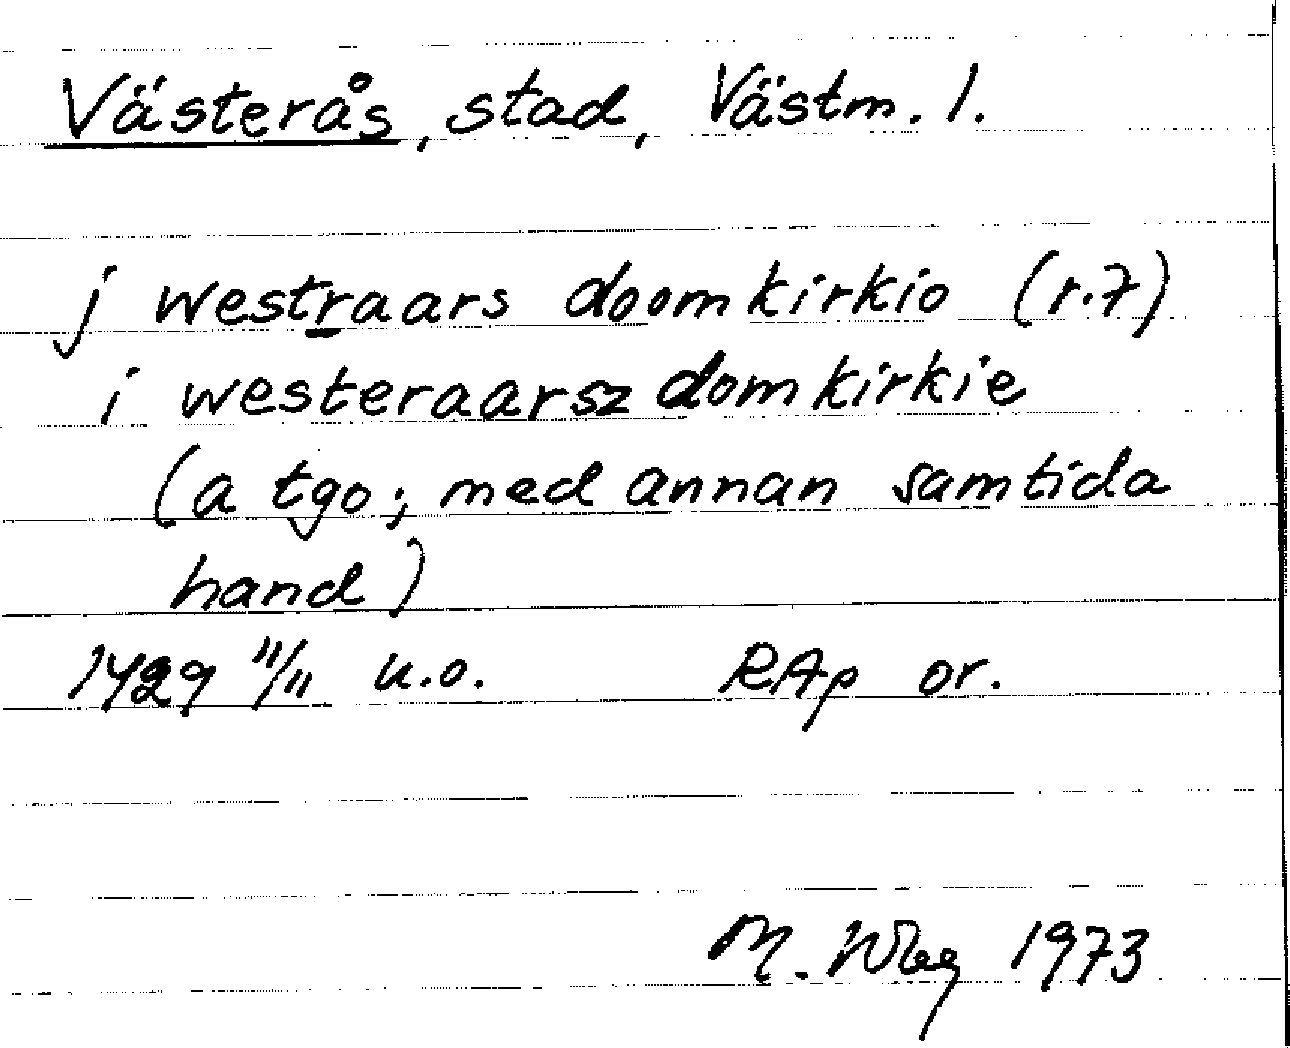 Västerås, stad, Västm. l.
j westraars doomkirkio (r.7)
i westeraarsz domkirkie
(a tgo; med annan samtida
hand)
1429 11/11 u.o. RAp or.
M. Wbg 1973